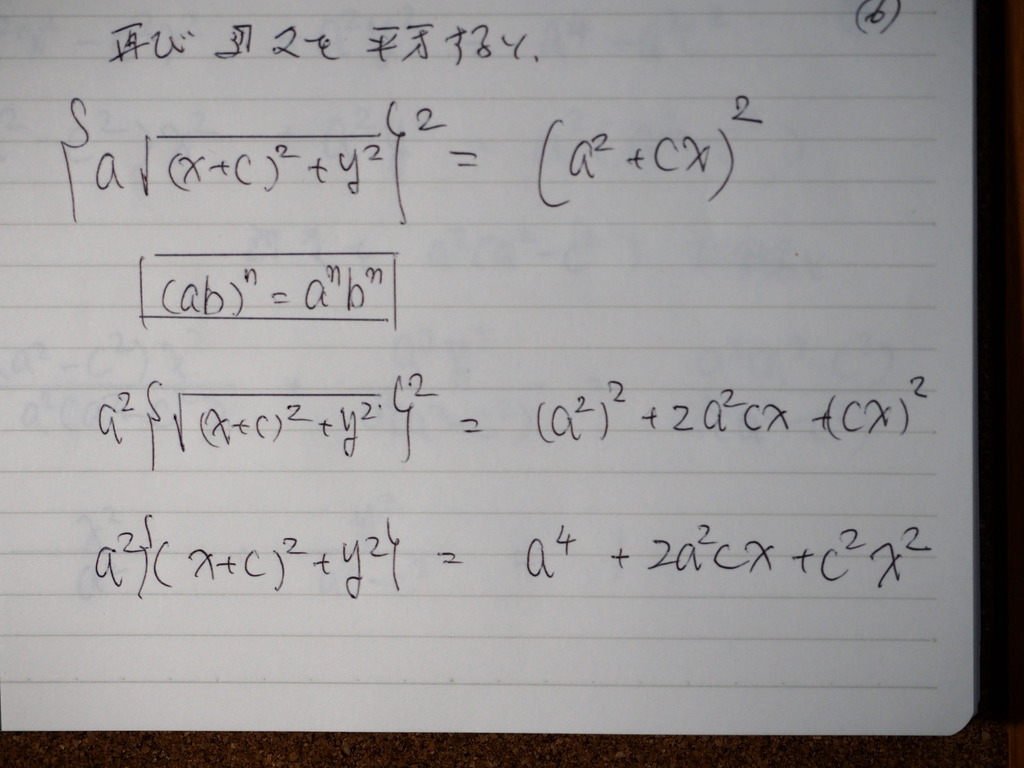 (6)
再び 両辺を 平方すると.
{a√(x+c)²+y²}² = (a²+cx)²
(ab)ⁿ = aⁿbⁿ
a²{√(x+c)²+y²}² = (a²)²+2a²cx+(cx)²
a²{(x+c)²+y²} = a⁴+2a²cx+c²x²